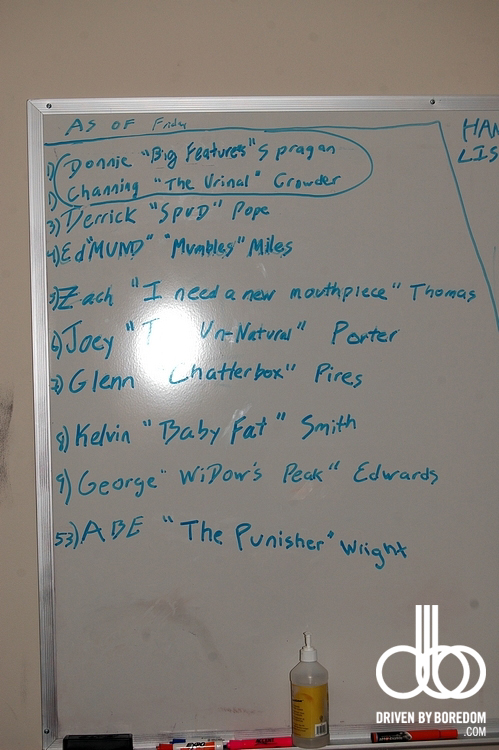 AS OF Friday
HAN
LIS
1) Donnie "Big Features" Spragan
1) Channing "The Urinal" Crowder
3) Derrick "SpuD" Pope
4) Ed "MUND" "Mumbles" Miles
5) Zach "I need a new mouthpiece" Thomas
6) Joey " Un-Natural" Porter
7) Glenn "Chatterbox" Pires
8) Kelvin "Baby Fat" Smith
9) George "WiDow's Peak" Edwards
53) ABE "The Punisher" Wright
EXPO
dbb
DRIVEN BY BOREDOM
.COM